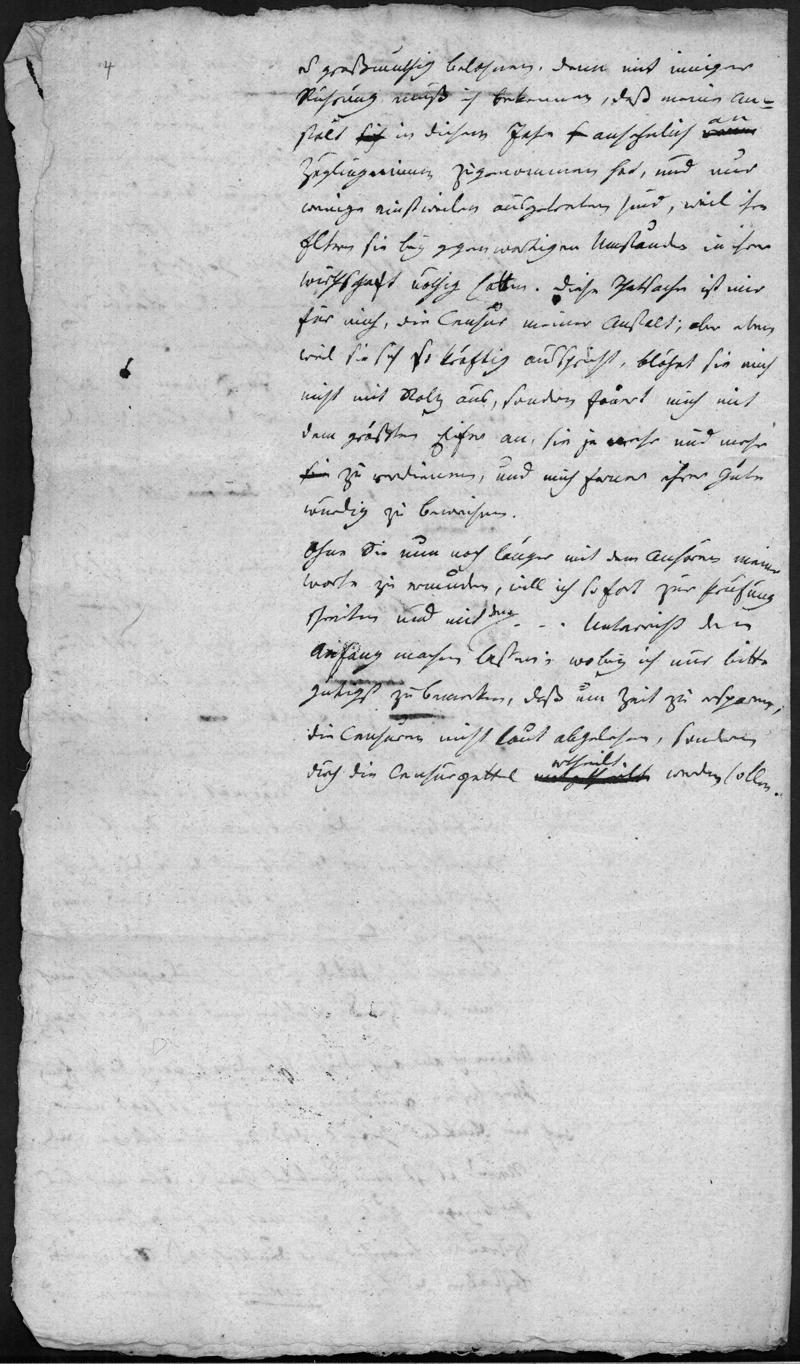 4
es großmuthig belohnen. denn mit inniger
Rührung muß ich bekennen, daß meine An-
stalt sich in diesem Jahr ansehnlich an
Zöglingerinnen zugenommen hat, und nur
wenige einstweilen ausgetreten sind, weil ihre
Eltern sie bey gegenwärtigen Umständen in ihrer
wirthschaft nöthig hatten. diese Thatsache ist mir
für mich, die Censur meiner Anstalt; aber eben
weil sie sich so kräftig ausspricht, blähet sie mich
nicht mit Stolz aus, sondern feuert mich mit
dem größten Eifer an, sie je mehr und mehr
sie zu verdienen, und mich ferner ihrer Güte
würdig zu beweisen.
Ohne Sie nun noch länger mit dem Anhören meiner
worte zu ermüden, will ich sofort zur Prüfung
schreiten und mit dem - - - Unterricht den
Anfang machen lassen: wobey ich nur bitte
gütigst zu bemerken, daß um Zeit zu ersparen,
die Censuren nicht laut abgelesen, sondern
durch die Censurzettel mitgetheilt ertheilt werden sollen.